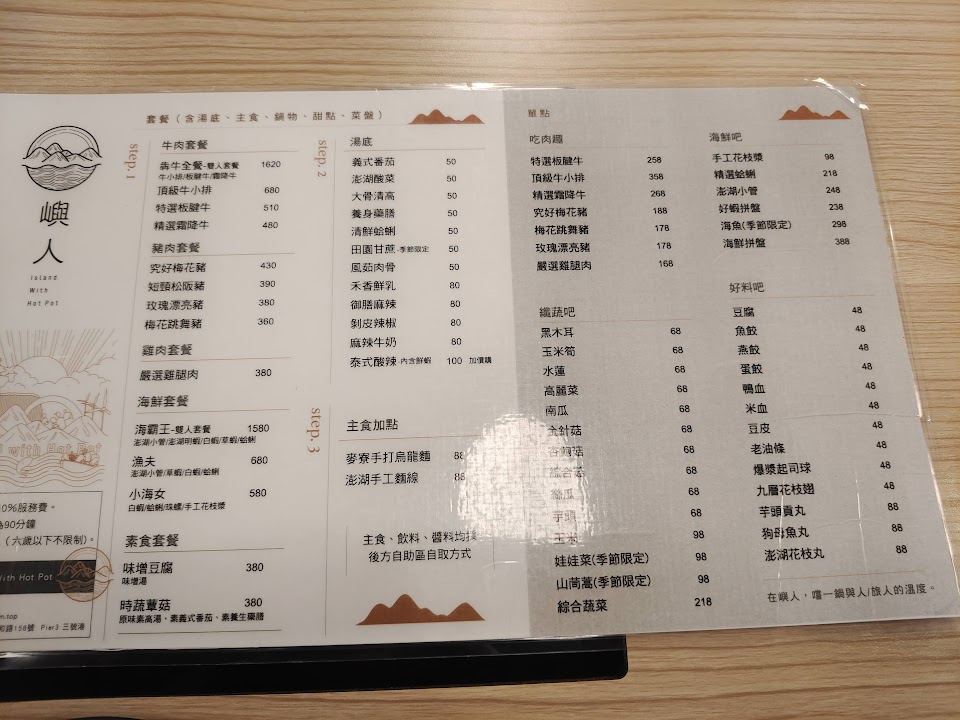 嶼
人
Island
With
Hot Pot
with Hot Pot
10%服務費。
90分鐘
(六歲以下不限制)。
With Hot Pot
m.top
路158號 Pier3 三號港
套餐(含湯底、主食、鍋物、甜點、菜盤)
step. 1
牛肉套餐
犇牛全餐-雙人套餐 1620
牛小排/板腱牛/霜降牛
頂級牛小排 680
特選板腱牛 510
精選霜降牛 480
豬肉套餐
究好梅花豬 430
短頸松阪豬 390
玫瑰漂亮豬 380
梅花跳舞豬 360
雞肉套餐
嚴選雞腿肉 380
海鮮套餐
海霸王-雙人套餐 1580
澎湖小管/澎湖明蝦/白蝦/草蝦/蛤蜊
漁夫 680
澎湖小管/草蝦/白蝦/蛤蜊
小海女 580
白蝦/蛤蜊/珠螺/手工花枝漿
素食套餐
味增豆腐 380
味增湯
時蔬蕈菇 380
原味素高湯、素義式番茄、素養生藥膳
step. 2
湯底
義式番茄 50
澎湖酸菜 50
大骨清高 50
養身藥膳 50
清鮮蛤蜊 50
田園甘蔗-季節限定 50
風茹肉骨 50
禾香鮮乳 80
御膳麻辣 80
剝皮辣椒 80
麻辣牛奶 80
泰式酸辣-內含鮮蝦 100 加價購
step. 3
主食加點
麥寮手打烏龍麵 88
澎湖手工麵線 88
主食、飲料、醬料均採
後方自助區自取方式
單點
吃肉趣
特選板腱牛 258
頂級牛小排 358
精選霜降牛 268
究好梅花豬 188
梅花跳舞豬 178
玫瑰漂亮豬 178
嚴選雞腿肉 168
纖蔬吧
黑木耳 68
玉米筍 68
水蓮 68
高麗菜 68
南瓜 68
金針菇 68
杏鮑菇 68
綜合菇 68
絲瓜 68
芋頭 68
玉米 98
娃娃菜(季節限定) 98
山茼蒿(季節限定) 98
綜合蔬菜 218
海鮮吧
手工花枝漿 98
精選蛤蜊 218
澎湖小管 248
好蝦拼盤 238
海魚(季節限定) 298
海鮮拼盤 388
好料吧
豆腐 48
魚餃 48
燕餃 48
蛋餃 48
鴨血 48
米血 48
豆皮 48
老油條 48
爆漿起司球 48
九層花枝翅 48
芋頭貢丸 88
狗母魚丸 88
澎湖花枝丸 88
在嶼人,嚐一鍋與人/旅人的溫度。